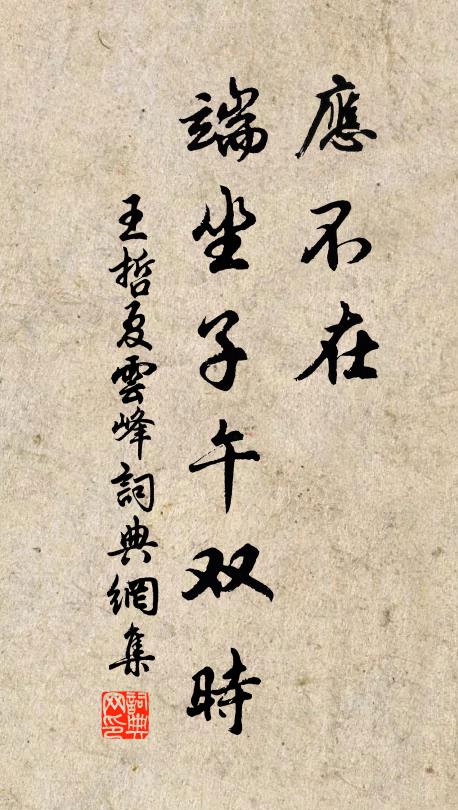 應不在
端坐子午双時
王哲夏雲峰詞典網集
詞典网印